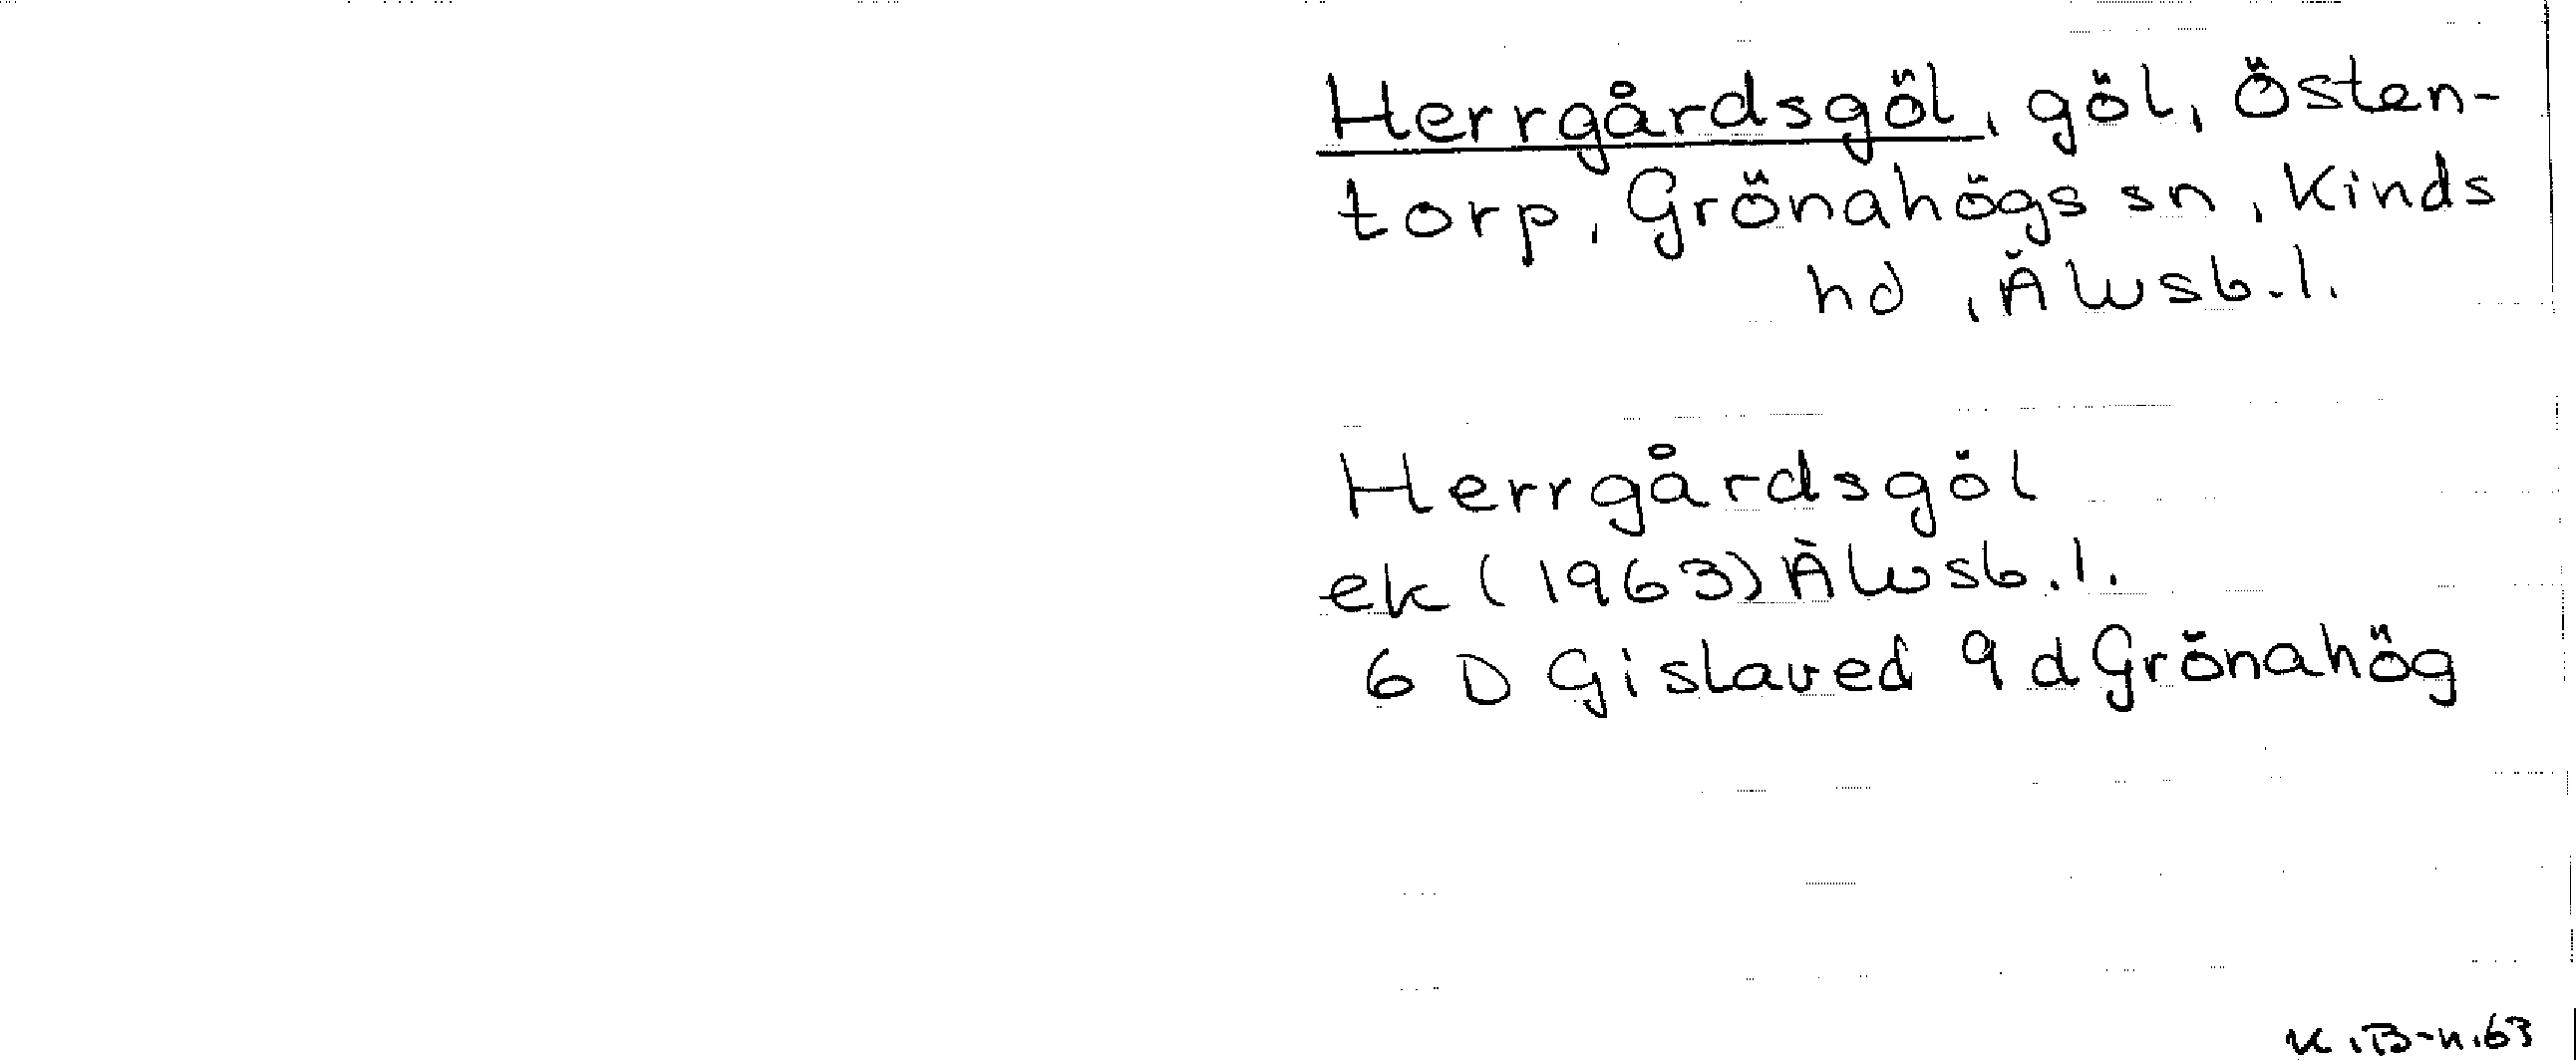 Herrgårdsgöl, göl, Östen-
torp, Grönahögs sn, Kinds
hd, Älvsb.l.
Herrgårdsgöl
ek (1963) Älvsb.l.
6 D Gislaved 9 d Grönahög
K.B-n.63